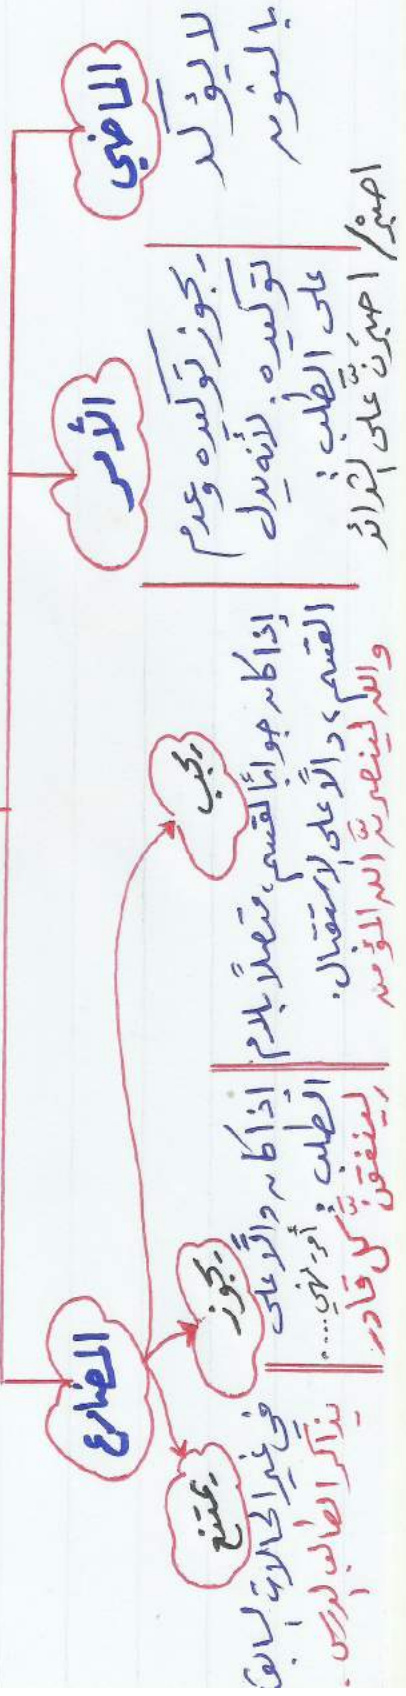 الماضي
لا يؤكد
بالنون
الأمر
يجوز توكيده وعدم
توكيده. لأنه يدل
على الطلب :
اصبر / اصبرنَّ على الشدائد
المضارع
يجب
إذا كان جوابًا لقسم، متصلًا بلام
القسم، دالًا على الاستقبال.
والله لينصرنَّ الله المؤمن
يجوز
إذا كان دالًا على
الطلب : أمر، نهي....
لينفقنَّ كل قادر
يمتنع
في غير الحالات السابقة
يذاكر الطالب الدرس.